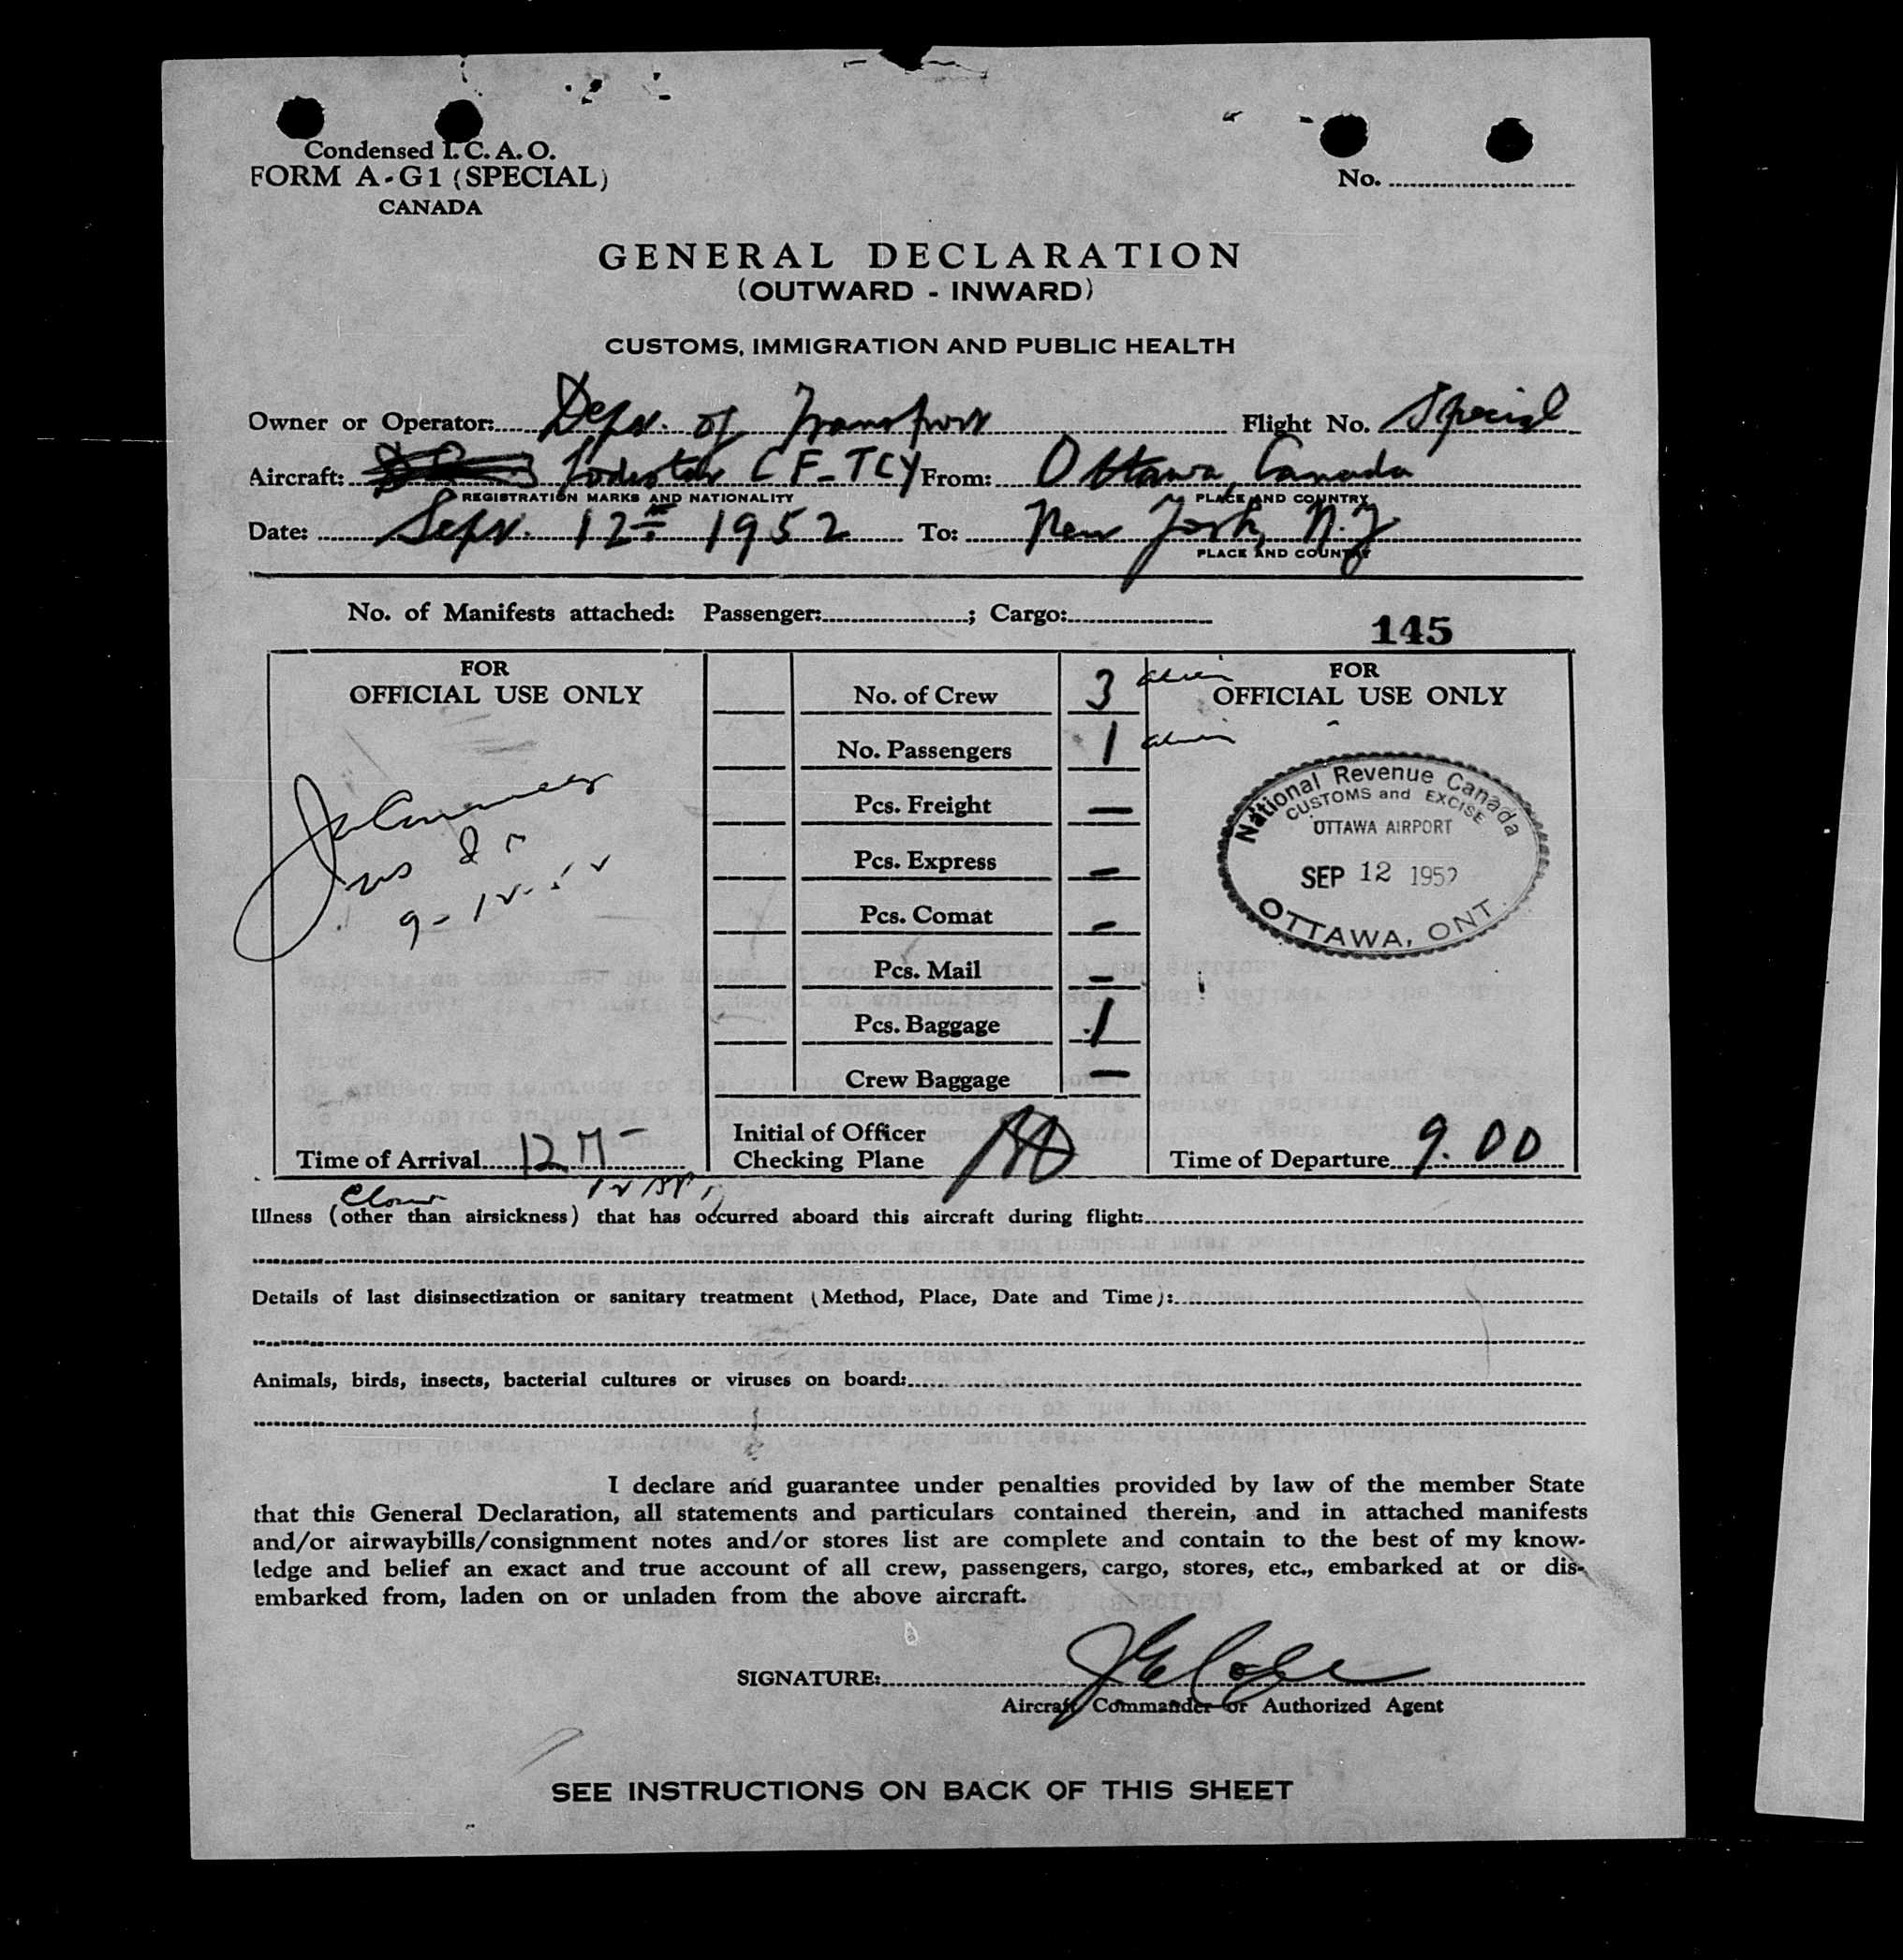 Condensed I.C.A.O.
FORM A-G1 (SPECIAL)
CANADA
No.
GENERAL DECLARATION
(OUTWARD - INWARD)
CUSTOMS, IMMIGRATION AND PUBLIC HEALTH
Owner or Operator: Dept. of Transport Flight No. Special
Aircraft: Lodestar CF-TCY From: Ottawa, Canada
REGISTRATION MARKS AND NATIONALITY PLACE AND COUNTRY
Date: Sept. 12th 1952 To: New York, N.Y.
PLACE AND COUNTRY
No. of Manifests attached: Passenger: ; Cargo:
145
FOR
OFFICIAL USE ONLY
No. of Crew 3 alien
No. Passengers 1 alien
Pcs. Freight —
Pcs. Express —
Pcs. Comat —
Pcs. Mail —
Pcs. Baggage 1
Crew Baggage —
FOR
OFFICIAL USE ONLY
National Revenue Canada
CUSTOMS and EXCISE
OTTAWA AIRPORT
SEP 12 1952
OTTAWA, ONT.
9-12-52
Time of Arrival 12 M-
Initial of Officer
Checking Plane
Time of Departure 9.00
Illness (other than airsickness) that has occurred aboard this aircraft during flight:
Details of last disinsectization or sanitary treatment (Method, Place, Date and Time):
Animals, birds, insects, bacterial cultures or viruses on board:
I declare and guarantee under penalties provided by law of the member State
that this General Declaration, all statements and particulars contained therein, and in attached manifests
and/or airwaybills/consignment notes and/or stores list are complete and contain to the best of my know-
ledge and belief an exact and true account of all crew, passengers, cargo, stores, etc., embarked at or dis-
embarked from, laden on or unladen from the above aircraft.
SIGNATURE:
Aircraft Commander or Authorized Agent
SEE INSTRUCTIONS ON BACK OF THIS SHEET